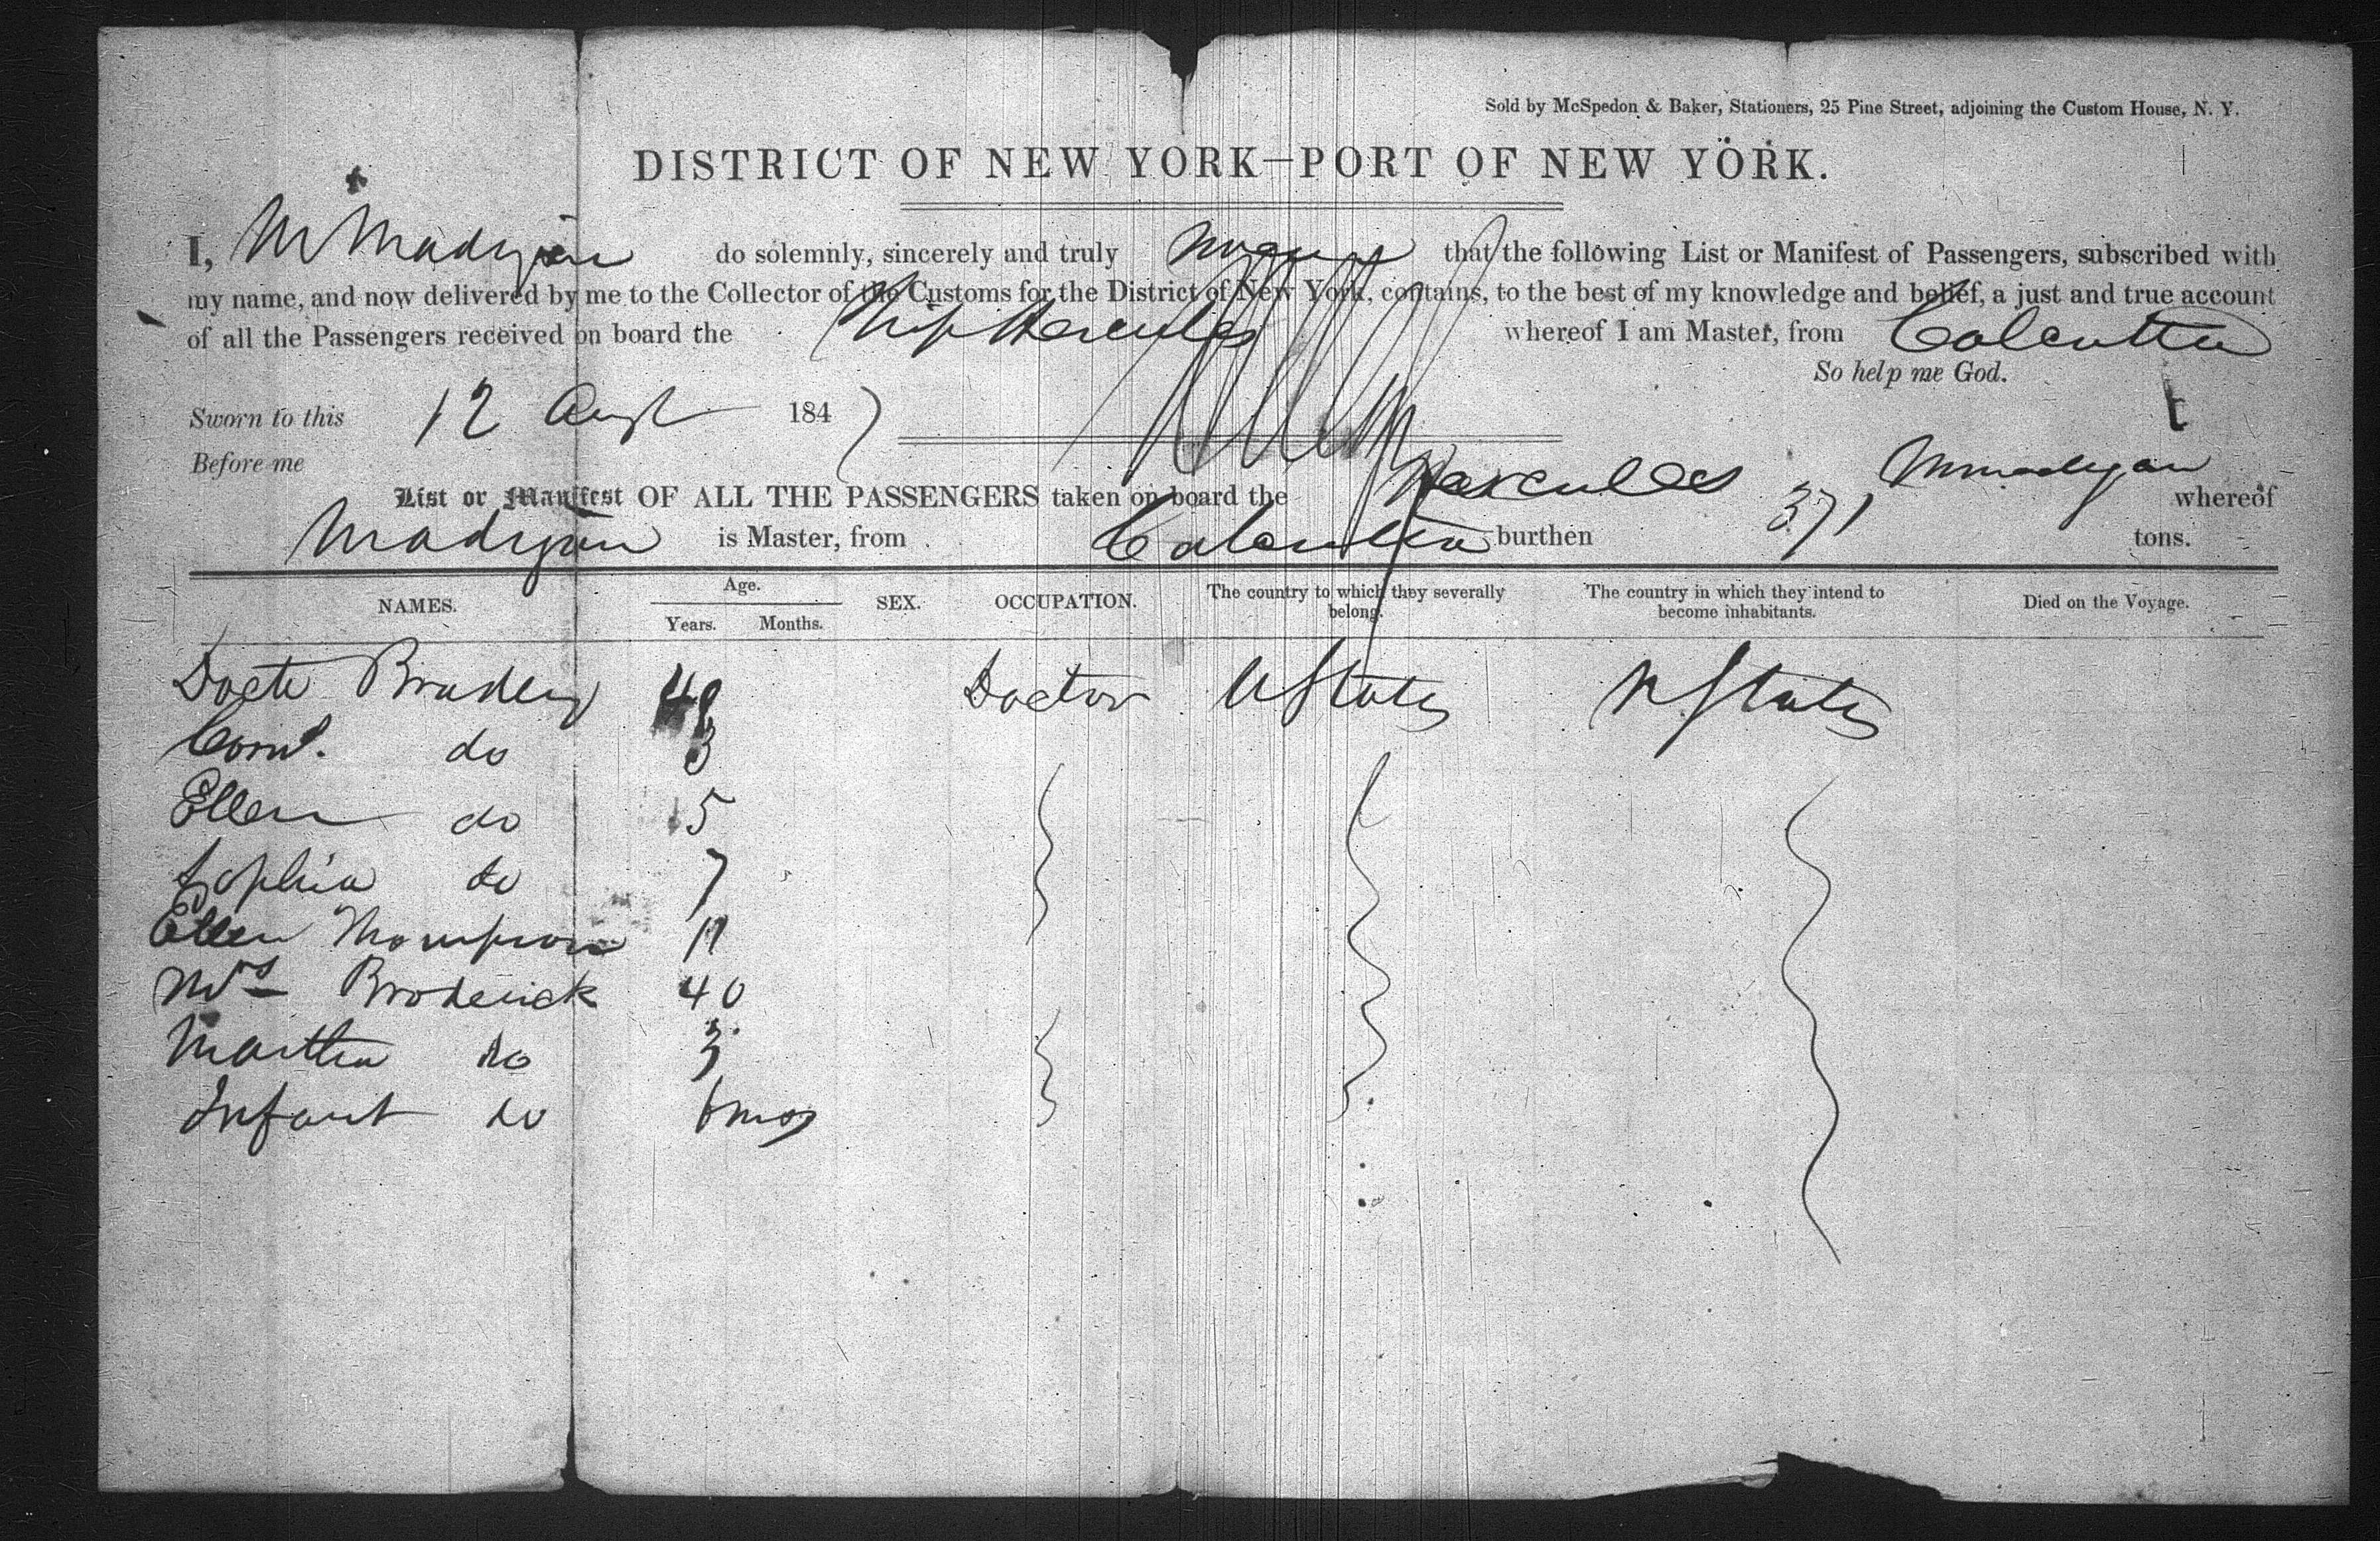 Sold by McSpedon & Baker, Stationers, 25 Pine Street, adjoining the Custom House, N. Y.
DISTRICT OF NEW YORK—PORT OF NEW YORK.
I, M Madigan do solemnly, sincerely and truly that the following List or Manifest of Passengers, subscribed with
my name, and now delivered by me to the Collector of the Customs for the District of New York, contains, to the best of my knowledge and belief, a just and true account
of all the Passengers received on board the Ship Hercules whereof I am Master, from Calcutta
So help me God.
Sworn to this 12 Augt 184
Before me
M Madigan
List or Manifest OF ALL THE PASSENGERS taken on board the Hercules whereof
Madigan is Master, from Calcutta burthen 371 tons.
NAMES. Age. Years. Months. SEX. OCCUPATION. The country to which they severally belong. The country in which they intend to become inhabitants. Died on the Voyage.
Doctr Bradley 48 Doctor UStates UStates
do 3
Ellen do 5
Sophia do 7
Ellen Thompson
Mrs Broderick 40
Martha do 3
Infant do 6 mos